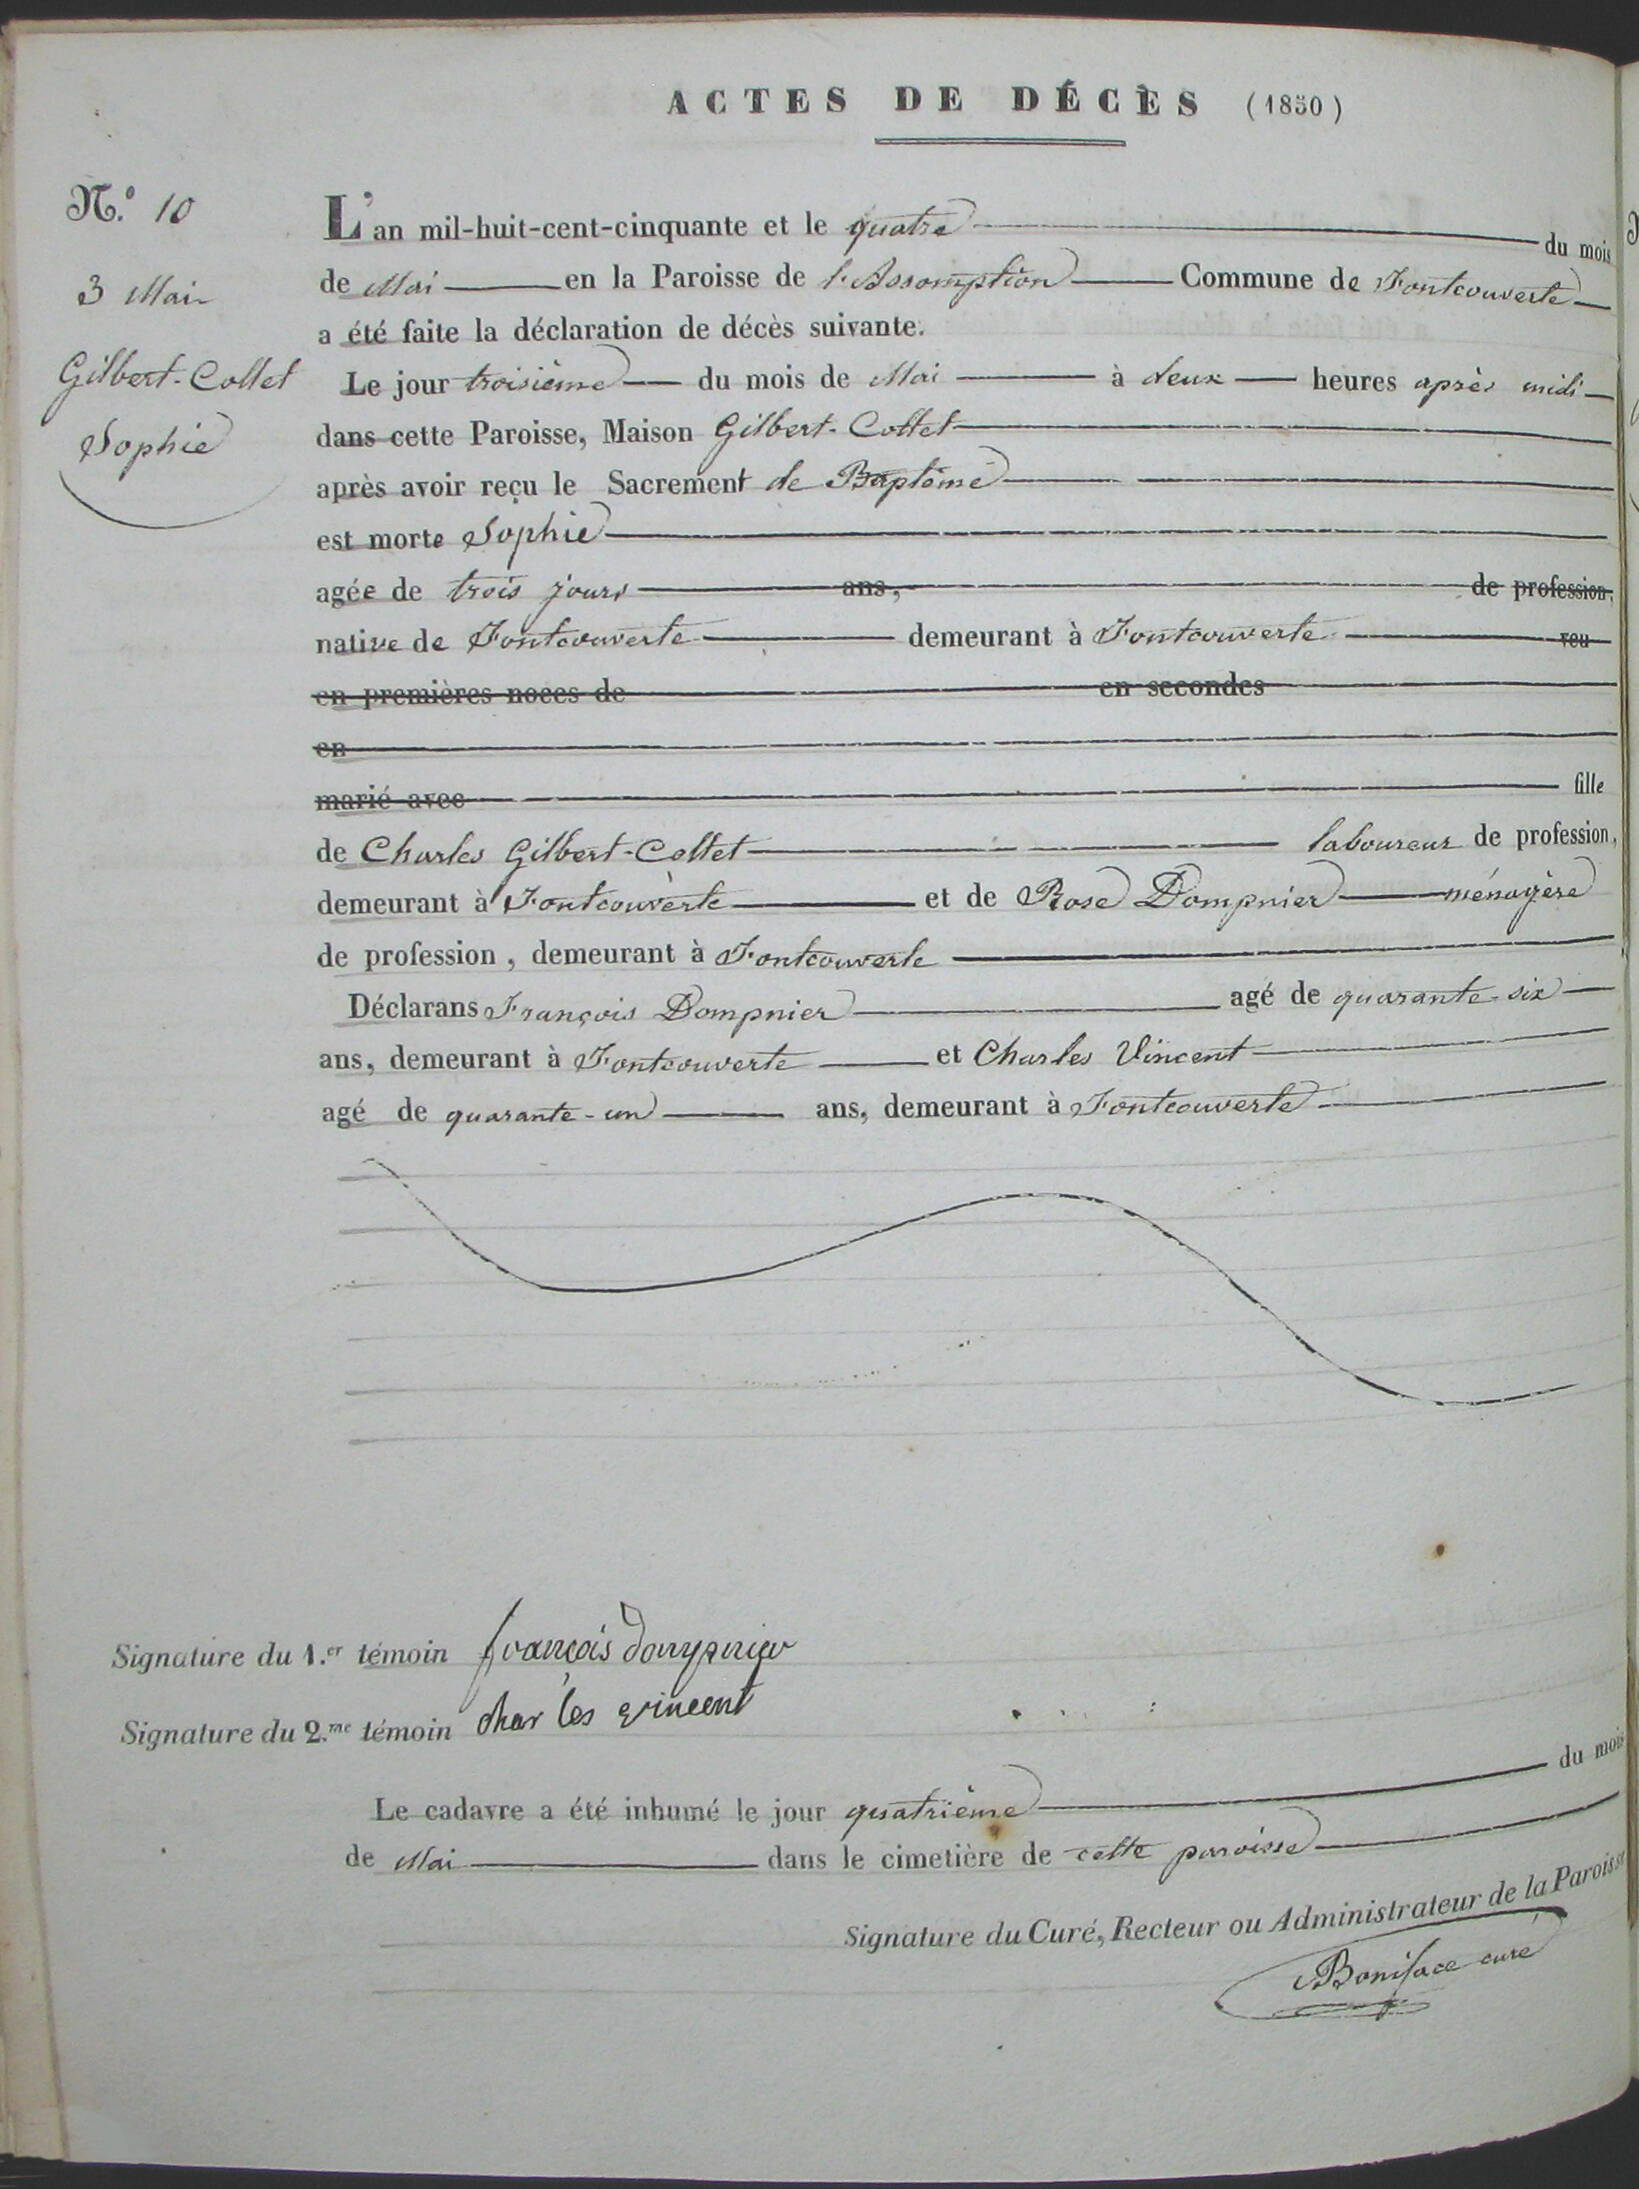 ACTES DE DÉCÈS (1850)
N.º 10
3 Mai
Gilbert-Collet
Sophie
L'an mil-huit-cent-cinquante et le quatre du mois
de Mai en la Paroisse de l'Assomption Commune de Fontcouverte
a été faite la déclaration de décès suivante.
Le jour troisième du mois de Mai à deux heures après midi
dans cette Paroisse, Maison Gilbert-Collet
après avoir reçu le Sacrement de Baptême
est morte Sophie
agée de trois jours ans, de profession,
native de Fontcouverte demeurant à Fontcouverte veu
en premières noces de en secondes
en
marié avec fille
de Charles Gilbert-Collet laboureur de profession,
demeurant à Fontcouverte et de Rose Dompnier ménagère
de profession, demeurant à Fontcouverte
Déclarans François Dompnier agé de quarante-six
ans, demeurant à Fontcouverte et Charles Vincent
agé de quarante-un ans, demeurant à Fontcouverte
Signature du 1.er témoin françois dompnier
Signature du 2.me témoin char les vincent
Le cadavre a été inhumé le jour quatrième du mois
de Mai dans le cimetière de cette paroisse
Signature du Curé, Recteur ou Administrateur de la Paroisse
Boniface curé